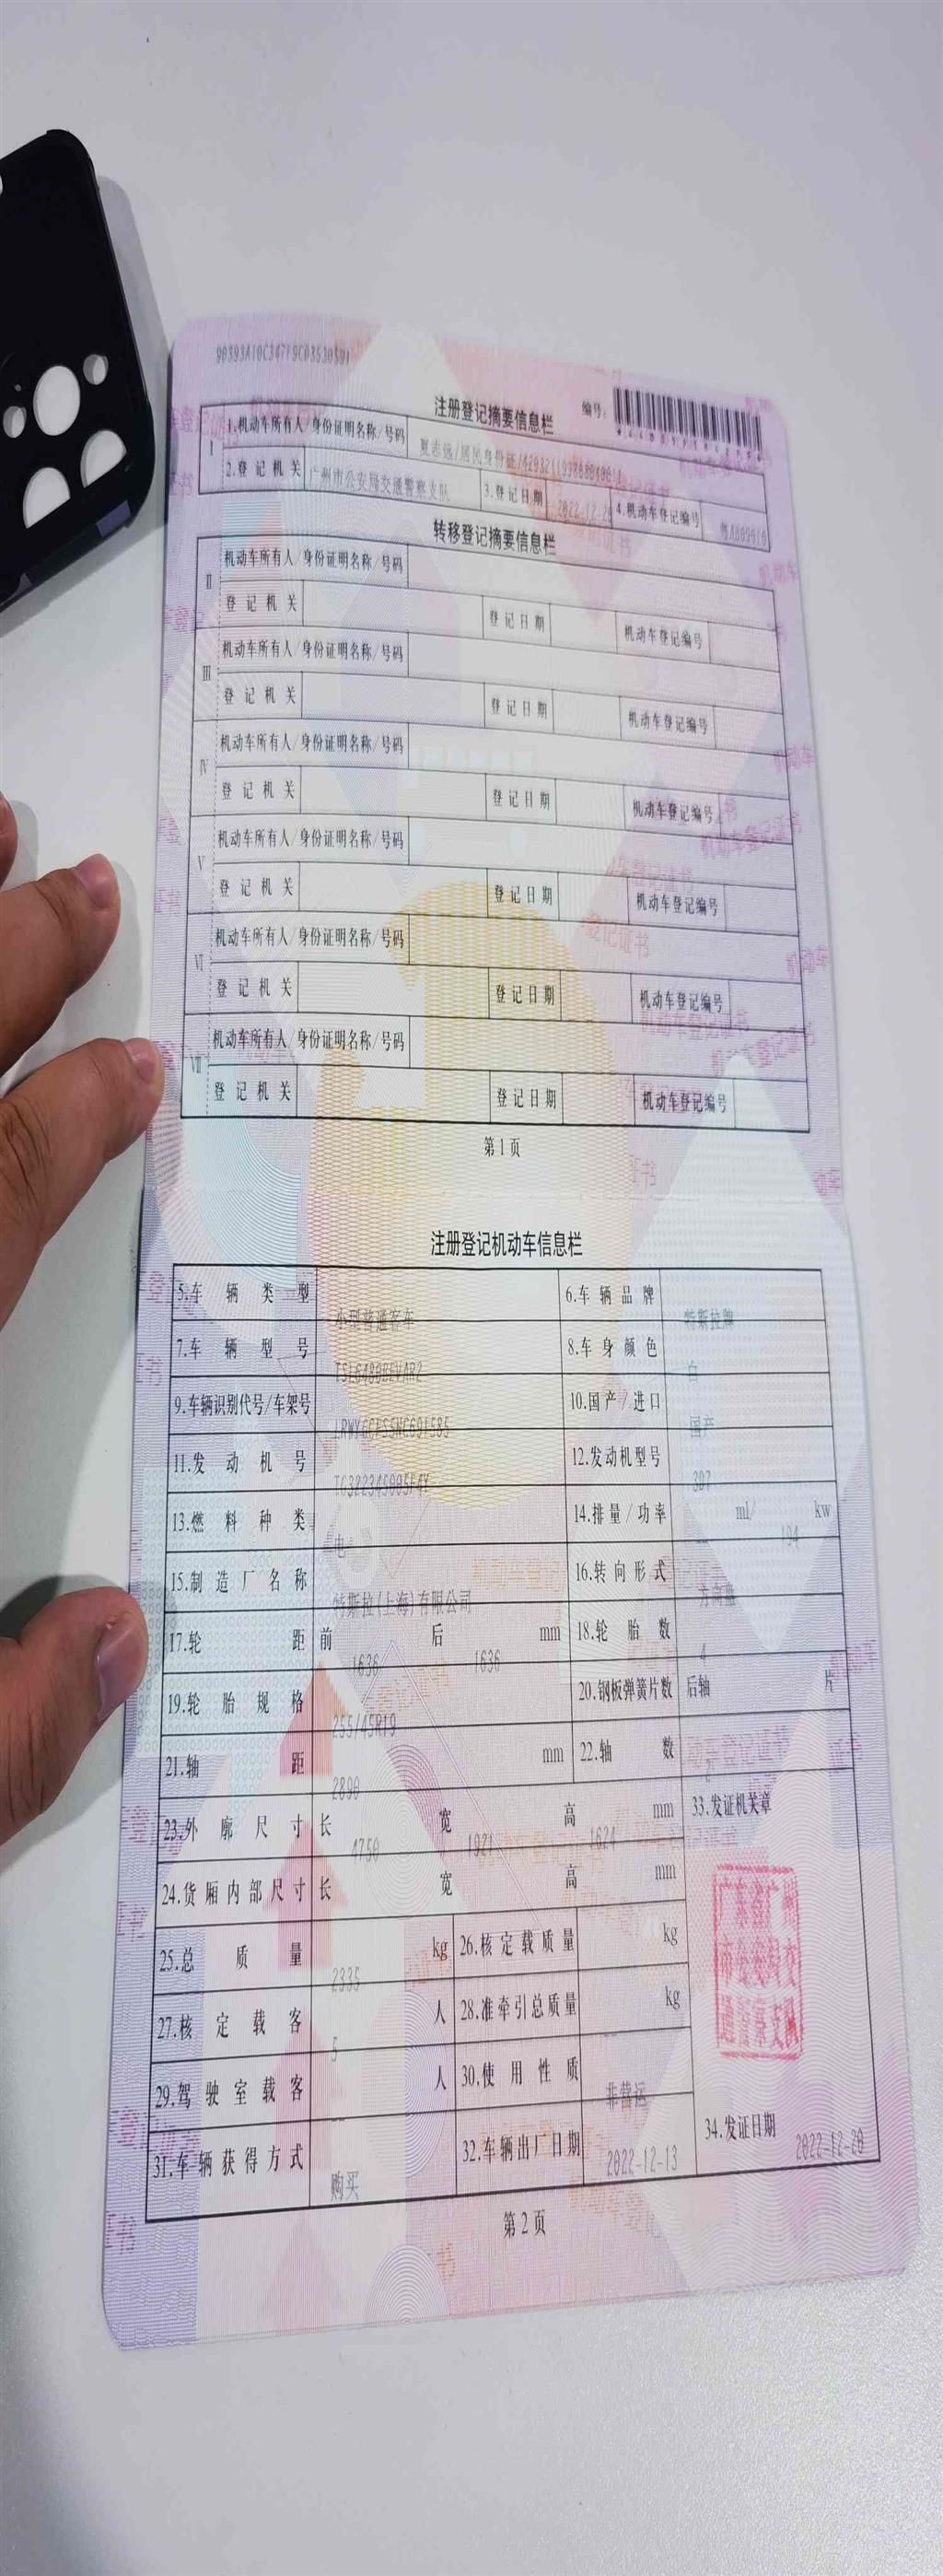 注册登记摘要信息栏
编号:
I
1.机动车所有人/身份证明名称/号码
夏志远/居民身份证/
2.登记机关 广州市公安局交通警察支队 3.登记日期 2022-12-20 4.机动车登记编号
转移登记摘要信息栏
II 机动车所有人/身份证明名称/号码
登记机关 登记日期 机动车登记编号
III 机动车所有人/身份证明名称/号码
登记机关 登记日期 机动车登记编号
IV 机动车所有人/身份证明名称/号码
登记机关 登记日期 机动车登记编号
V 机动车所有人/身份证明名称/号码
登记机关 登记日期 机动车登记编号
VI 机动车所有人/身份证明名称/号码
登记机关 登记日期 机动车登记编号
VII 机动车所有人/身份证明名称/号码
登记机关 登记日期 机动车登记编号
第1页
注册登记机动车信息栏
5.车辆类型 小型普通客车 6.车辆品牌 特斯拉牌
7.车辆型号 TSL6480BEVAR2 8.车身颜色 白
9.车辆识别代号/车架号 10.国产/进口 国产
11.发动机号 12.发动机型号 3D7
13.燃料种类 电 14.排量/功率 ml/ 194 kw
15.制造厂名称 特斯拉(上海)有限公司 16.转向形式 方向盘
17.轮距 前 1636 后 1636 mm 18.轮胎数 4
19.轮胎规格 255/45R19 20.钢板弹簧片数 后轴 片
21.轴距 2890 mm 22.轴数 2
23.外廓尺寸 长 4750 宽 1921 高 1624 mm 33.发证机关章
24.货厢内部尺寸 长 宽 高 mm
广东省广州
市公安局交
通警察支队
25.总质量 2335 kg 26.核定载质量 kg
27.核定载客 5 人 28.准牵引总质量 kg
29.驾驶室载客 人 30.使用性质 非营运
31.车辆获得方式 购买 32.车辆出厂日期 2022-12-13 34.发证日期 2022-12-20
第2页